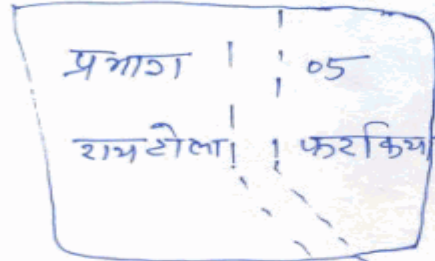 प्रभाग 05
रायटोला फरकिया